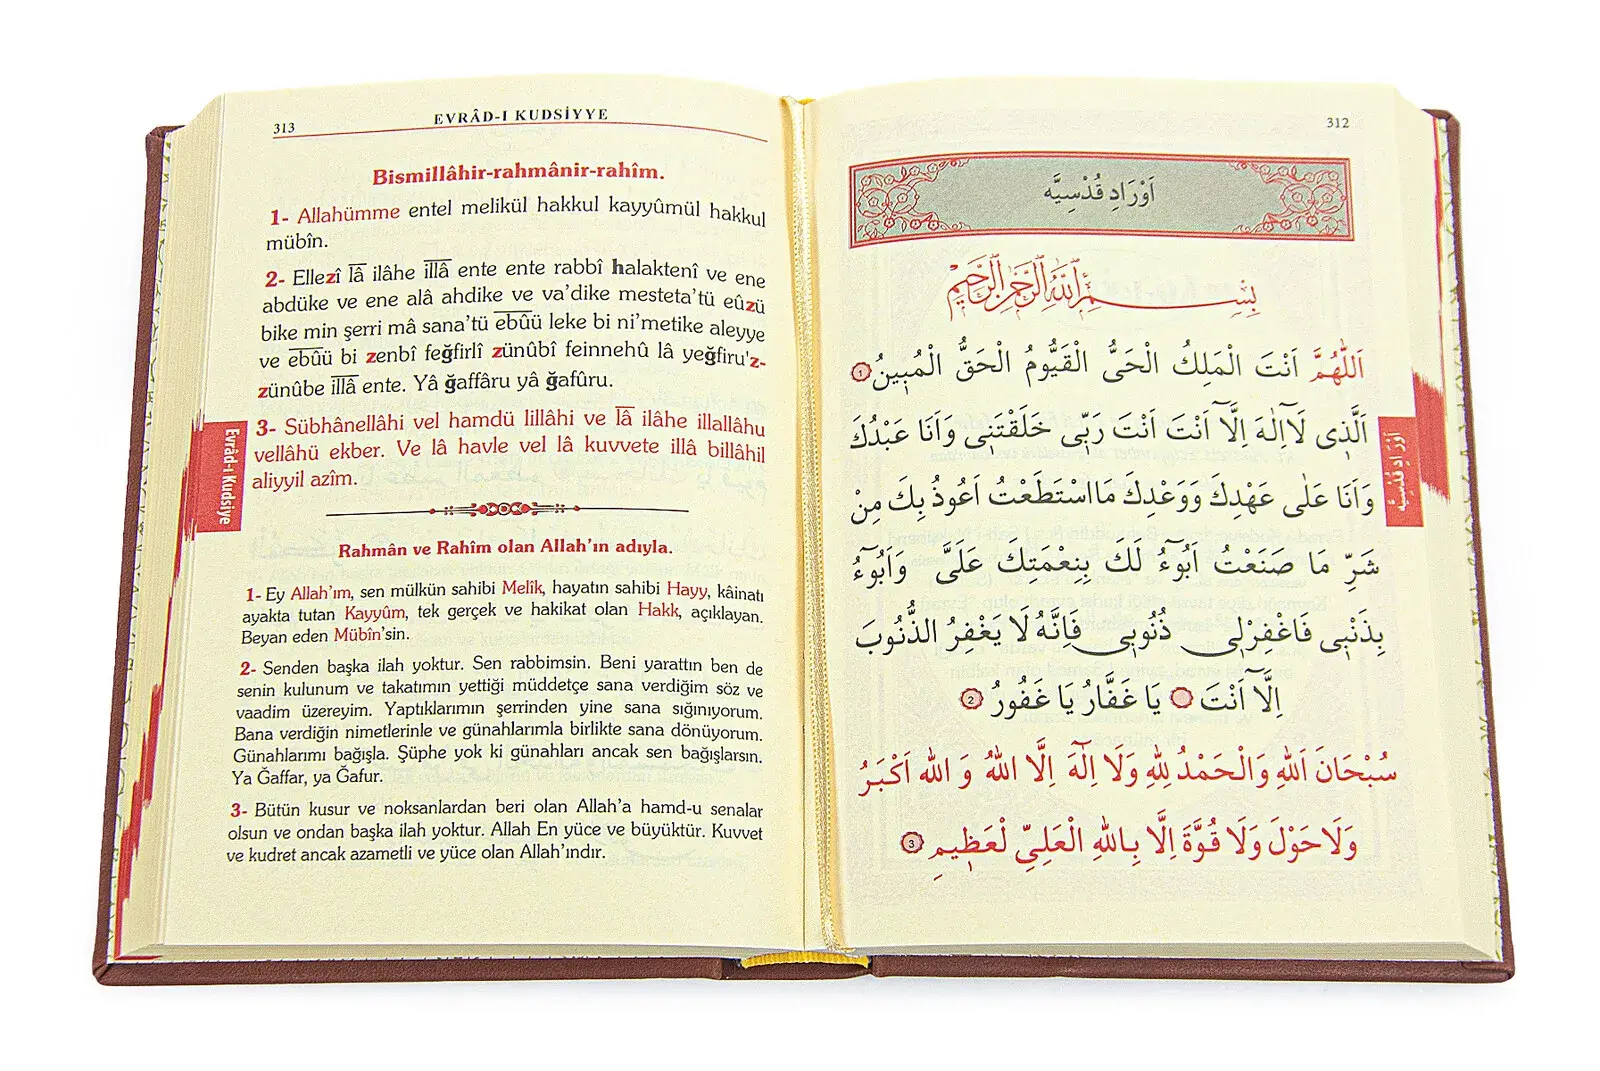 312
اَوْرَادِ قُدْسِيَّه
بِسْمِ اللّٰهِ الرَّحْمٰنِ الرَّحِيمِ
اَللّٰهُمَّ اَنْتَ الْمَلِكُ الْحَىُّ الْقَيُّومُ الْحَقُّ الْمُبٖينُ ١
اَلَّذٖى لَٓا اِلٰهَ اِلَّٓا اَنْتَ اَنْتَ رَبّٖى خَلَقْتَنٖى وَاَنَا عَبْدُكَ
وَاَنَا عَلٰى عَهْدِكَ وَوَعْدِكَ مَااسْتَطَعْتُ اَعُوذُ بِكَ مِنْ
شَرِّ مَا صَنَعْتُ اَبُٓوءُ لَكَ بِنِعْمَتِكَ عَلَىَّ وَاَبُٓوءُ
بِذَنْبٖى فَاغْفِرْلٖى ذُنُوبٖى فَاِنَّهُ لَا يَغْفِرُ الذُّنُوبَ
اِلَّٓا اَنْتَ يَا غَفَّارُ يَا غَفُورُ 2
سُبْحَانَ اللّٰهِ وَالْحَمْدُ لِلّٰهِ وَلَا اِلٰهَ اِلَّا اللّٰهُ وَ اللّٰه اَكْبَرُ
وَلَا حَوْلَ وَلَا قُوَّةَ اِلَّا بِاللّٰهِ الْعَلِىِّ لْعَظٖيمِ 3
اَوْرَادِ قُدْسِيَّه
313
EVRÂD-I KUDSİYYE
Bismillâhir-rahmânir-rahîm.
1- Allahümme entel melikül hakkul kayyûmül hakkul
mübîn.
2- Ellezî lâ ilâhe illâ ente ente rabbî halaktenî ve ene
abdüke ve ene alâ ahdike ve va’dike mesteta’tü eûzü
bike min şerri mâ sana’tü ebûü leke bi ni’metike aleyye
ve ebûü bi zenbî feğfirlî zünûbî feinnehû lâ yeğfiru'z-
zünûbe illâ ente. Yâ ğaffâru yâ ğafûru.
3- Sübhânellâhi vel hamdü lillâhi ve lâ ilâhe illallâhu
vellâhü ekber. Ve lâ havle vel lâ kuvvete illâ billâhil
aliyyil azîm.
Rahmân ve Rahîm olan Allah’ın adıyla.
1- Ey Allah’ım, sen mülkün sahibi Melîk, hayatın sahibi Hayy, kâinatı
ayakta tutan Kayyûm, tek gerçek ve hakikat olan Hakk, açıklayan.
Beyan eden Mübîn’sin.
2- Senden başka ilah yoktur. Sen rabbimsin. Beni yarattın ben de
senin kulunum ve takatımın yettiği müddetçe sana verdiğim söz ve
vaadim üzereyim. Yaptıklarımın şerrinden yine sana sığınıyorum.
Bana verdiğin nimetlerinle ve günahlarımla birlikte sana dönüyorum.
Günahlarımı bağışla. Şüphe yok ki günahları ancak sen bağışlarsın.
Ya Ğaffar, ya Ğafur.
3- Bütün kusur ve noksanlardan beri olan Allah’a hamd-u senalar
olsun ve ondan başka ilah yoktur. Allah En yüce ve büyüktür. Kuvvet
ve kudret ancak azametli ve yüce olan Allah’ındır.
Evrâd-ı Kudsiye